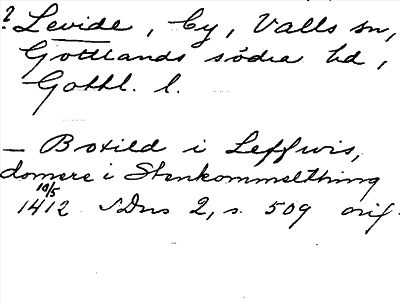 ? Levide, by, Valls sn,
Gottlands södra hd,
Gottl. l.
— Botild i Leffwis,
domere i Stenkommelthing
10/5
1412 SDns 2, s. 509 orig.